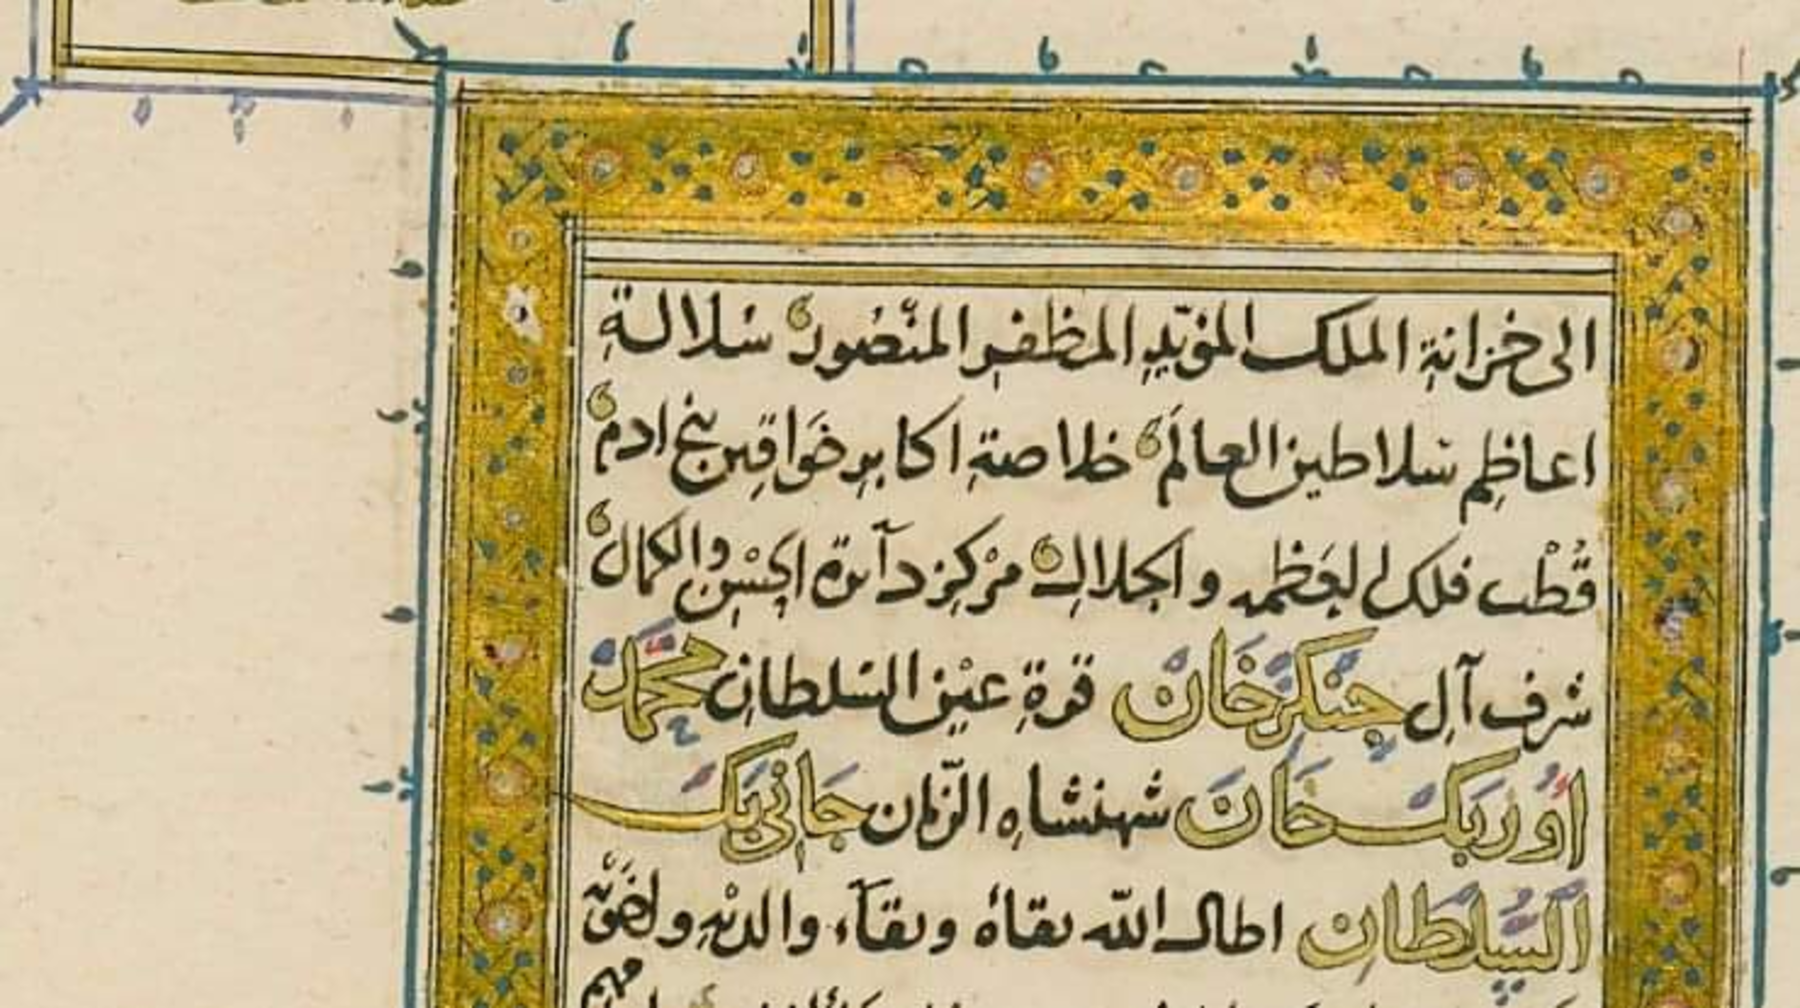 الى خزانة الملك المؤيّدِ المظفرِ المنْصُور سُلالةِ
اعاظِمِ سَلاطين العالَم خلاصةِ اكابرِ خَواقين بنى ادم
قُطْب فلك العَظمه والجلال مَرْكز دآئرة الحُسْن والكمال
شرف آلِ جنكزخان قرة عيْن السّلطان محمّد
اوزبك خان شهنشاهِ الزّمان جانى بك
السلطان اطال الله بقاءهُ وبقآء والديْهِ و